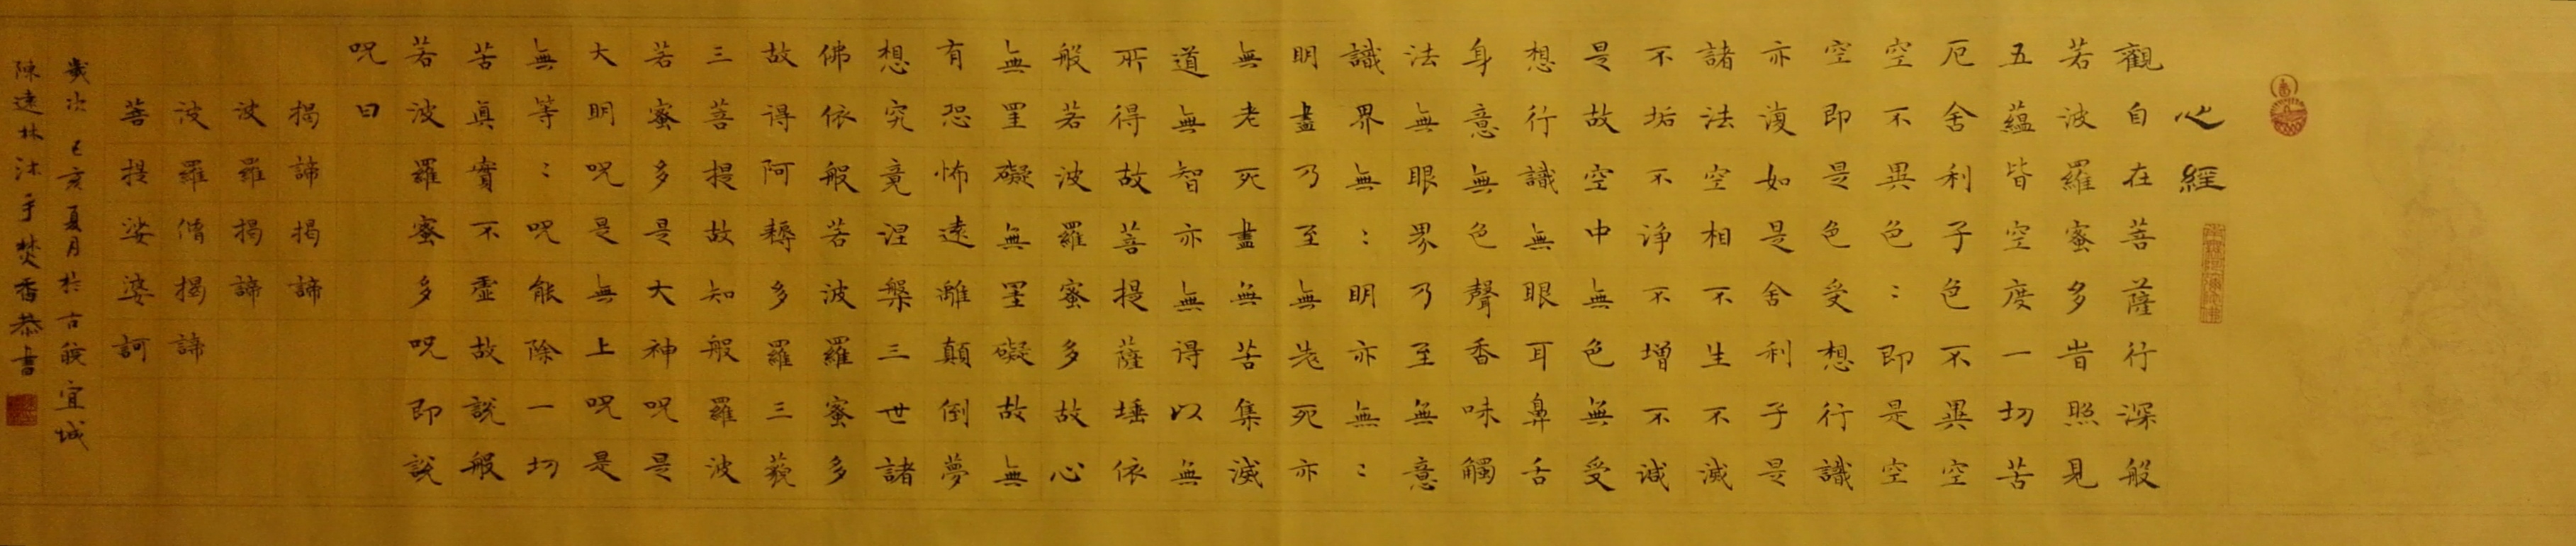 心經
觀自在菩薩行深般
若波羅蜜多旹照見
五蘊皆空度一切苦
厄舍利子色不異空
空不異色：即是空
空即是色受想行識
亦復如是舍利子是
諸法空相不生不滅
不垢不淨不增不減
是故空中無色無受
想行識無眼耳鼻舌
身意無色聲香味觸
法無眼界乃至無意
識界無：明亦無：
明盡乃至無老死亦
無老死盡無苦集滅
道無智亦無得以無
所得故菩提薩埵依
般若波羅蜜多故心
無罣礙無罣礙故無
有恐怖遠離顛倒夢
想究竟涅槃三世諸
佛依般若波羅蜜多
故得阿耨多羅三藐
三菩提故知般羅波
若蜜多是大神呪是
大明呪是無上呪是
無等：呪能除一切
苦真實不虛故說般
若波羅蜜多呪即說
呪曰
揭諦揭諦
波羅揭諦
波羅僧揭諦
菩提娑婆訶
歲次己亥夏月於古皖宜城
陳遠林沐手焚香恭書